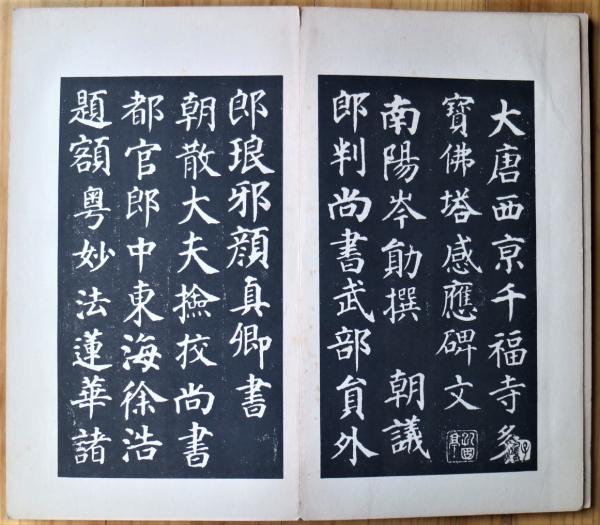 大唐西京千福寺多
寶佛塔感應碑文
南陽岑勛撰 朝議
郎判尚書武部員外
郎琅邪顏真卿書
朝散大夫撿挍尚書
都官郎中東海徐浩
題額粵妙法蓮華諸